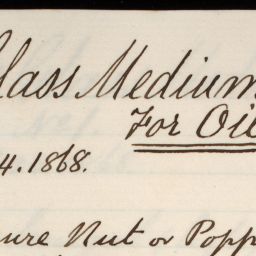 lass Medium
For Oil
4. 1868.
ure Nut or Popp